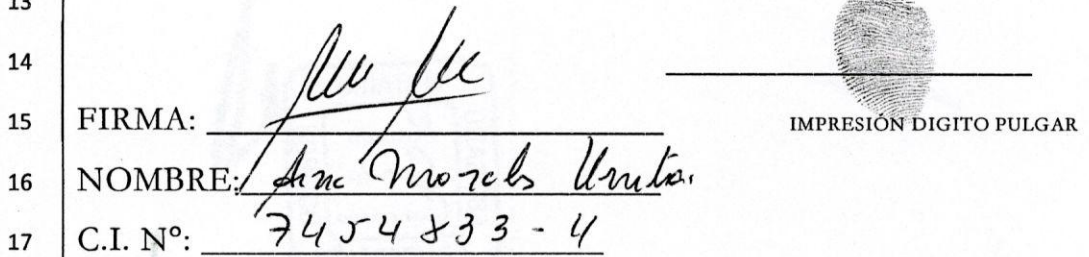 13
14
15 FIRMA:
IMPRESIÓN DIGITO PULGAR
16 NOMBRE: Ana Morales Urrutia.
17 C.I. Nº: 7454833-4